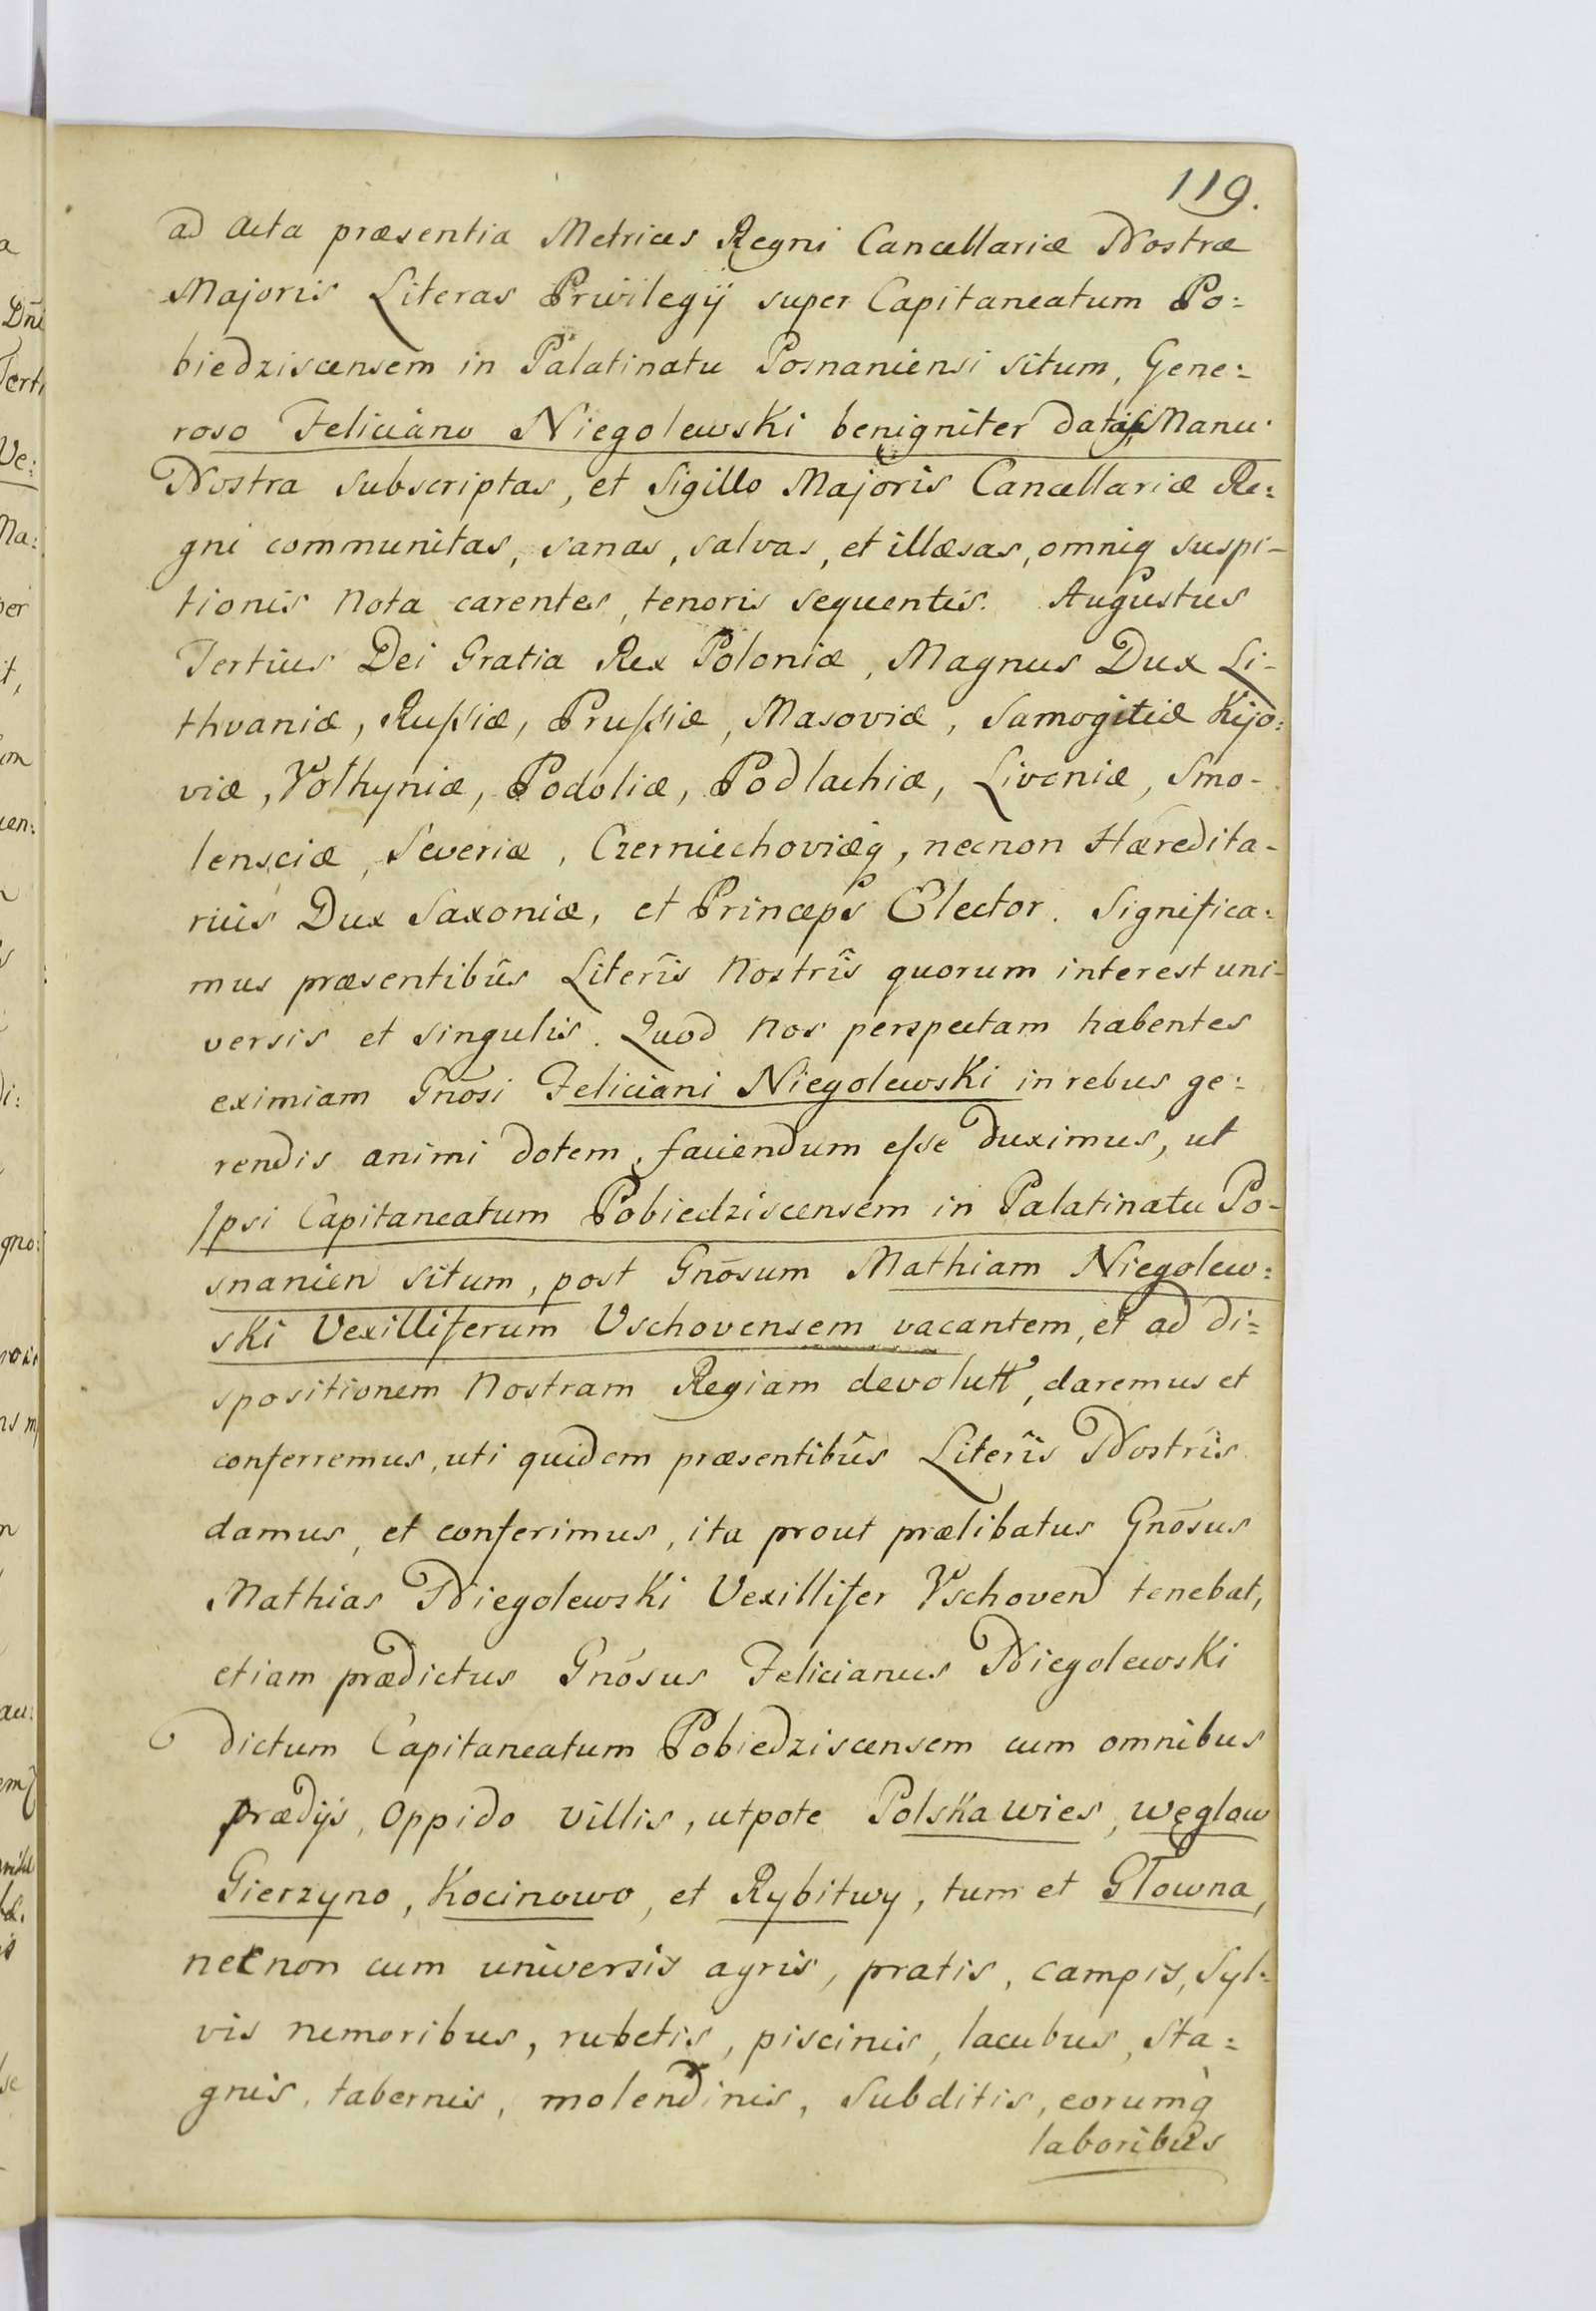 119.
ad Acta præsentia Metrices Regni Cancellariæ Nostræ
Majoris Literas Privilegÿ super Capitaneatum Po:
biedziscensem in Palatinatu Posnaniensi situm, Gene:
roso Feliciano Niegolewski benigniter datas, Manu
Nostra subscriptas, et Sigillo Majoris Cancellariæ Re:
gni communitas, sanas, salvas, et illæsas, omniq suspi-
tionis Nota carentes, tenoris sequentis. Augustus
Tertius Dei Gratia Rex Poloniæ, Magnus Dux Li-
thvaniæ, Russiæ, Prussiæ, Masoviæ, Samogitiæ Kijo:
viæ, Volhyniæ, Podoliæ, Podlachiæ, Livoniæ, Smo-
lensciæ, Severiæ, Czerniechoviæq, necnon Hæredita-
rius Dux Saxoniæ, et Princeps Elector. Significa:
mus præsentibûs Literîs Nostrîs quorum interest uni-
versis et singulis. Quod Nos perspectam habentes
eximiam Gnõsi Feliciani Niegolewski in rebus ge:
rendis animi dotem, faciendum esse duximus, ut
Ipsi Capitaneatum Pobiedziscensem in Palatinatu Po-
snanien situm, post Gnõsum Mathiam Niegolew:
ski Vexilliferum Vschovensem vacantem, et ad di=
spositionem Nostram Regiam devolutt, daremus et
conferremus, uti quidem præsentibûs Literîs Nostrîs
damus, et conferimus, ita prout prælibatus Gnõsus
Mathias Niegolewski Vexillifer Vschoven tenebat,
etiam prædictus Gnõsus Felicianus Niegolewski
dictum Capitaneatum Pobiedziscensem cum omnibus
prædijs, Oppido villis, utpote Polska wies, węglow
Gierzyno, Kocinowo, et Rybitwy, tum et Głowna,
necnon cum universis agris, pratis, campis, Syl:
vis nemoribus, rubetis, piscinis, lacubus, Sta=
gnis, tabernis, molendinis, Subditis, eorumq̀
laboribus